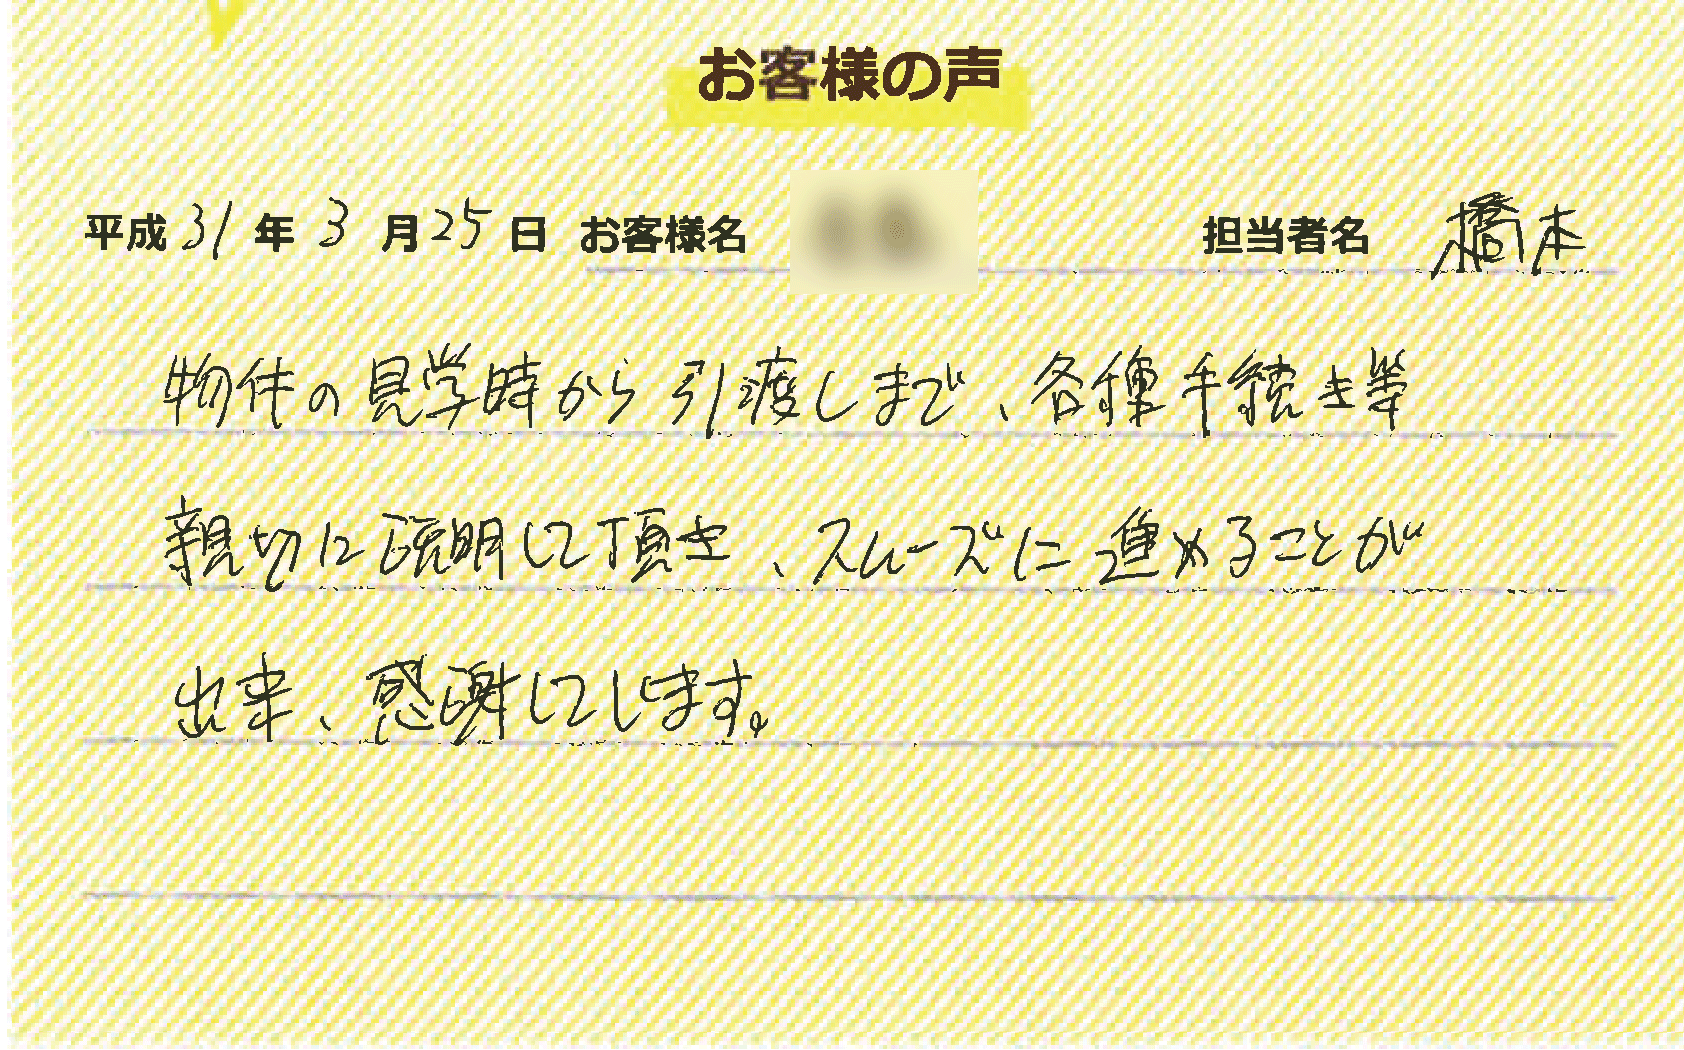 お客様の声
平成 31 年 3 月 25 日 お客様名 担当者名 橋本
物件の見学時から引渡しまで、各種手続き等
親切に説明して頂き、スムーズに進めることが
出来、感謝してします。